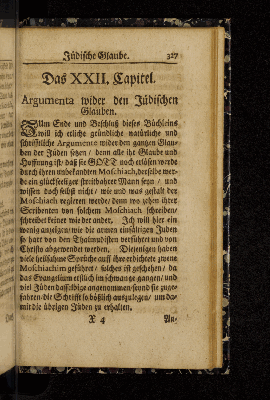 Jüdische Glaube. 327
Das XXII. Capitel.
Argumenta wider den Jüdischen
Glauben.
Zum Ende und Beschluß dieses Büchleins
will ich etliche gründliche natürliche und
schrifftliche Argumente wider den gantzen Glau-
ben der Jüden setzen / denn alle ihr Glaube und
Hoffnung ist / daß sie GOTT noch erlösen werde
durch ihren unbekandten Moschiach, derselbe wer-
de ein glückseeliger streitbahrer Mann seyn / und
wissen doch selbst nicht / wie und was gestalt der
Moschiach regieren werde / denn wo zehen ihrer
Scribenten von solchem Moschiach schreiben /
schreibet keiner wie der ander. Ich will hier ein
wenig anzeigen / wie die armen einfältigen Juden
so hart von den Thalmudisten verführet und von
Christo abgewendet werden. Diejenigen haben
viele heilsahme Sprüche auff ihre erdichtete zwene
Moschiachim geführet / solches ist geschehen / da
das Evangelium erstlich im schwange gangen / und
viel Jüden dasselbige angenommen / seynd sie zuge-
fahren / die Schrifft so bößlich auszulegen / um da-
mit die übrigen Jüden zu erhalten.
X 4 An-